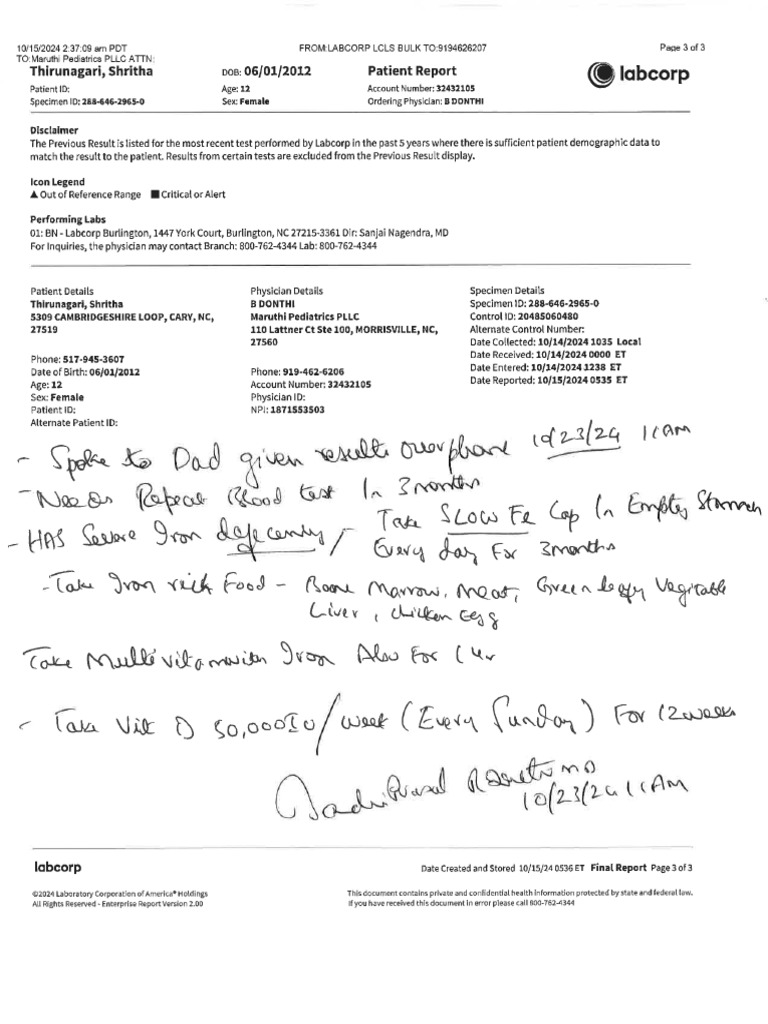 10/15/2024 2:37:09 am PDT FROM:LABCORP LCLS BULK TO:9194626207 Page 3 of 3
TO:Maruthi Pediatrics PLLC ATTN:
Thirunagari, Shritha DOB: 06/01/2012 Patient Report labcorp
Patient ID: Age: 12 Account Number: 32432105
Specimen ID: 288-646-2965-0 Sex: Female Ordering Physician: B DONTHI
Disclaimer
The Previous Result is listed for the most recent test performed by Labcorp in the past 5 years where there is sufficient patient demographic data to
match the result to the patient. Results from certain tests are excluded from the Previous Result display.
Icon Legend
▲ Out of Reference Range ■ Critical or Alert
Performing Labs
01: BN - Labcorp Burlington, 1447 York Court, Burlington, NC 27215-3361 Dir: Sanjai Nagendra, MD
For Inquiries, the physician may contact Branch: 800-762-4344 Lab: 800-762-4344
Patient Details Physician Details Specimen Details
Thirunagari, Shritha B DONTHI Specimen ID: 288-646-2965-0
5309 CAMBRIDGESHIRE LOOP, CARY, NC, Maruthi Pediatrics PLLC Control ID: 20485060480
27519 110 Lattner Ct Ste 100, MORRISVILLE, NC, Alternate Control Number:
27560 Date Collected: 10/14/2024 1035 Local
Phone: 517-945-3607 Date Received: 10/14/2024 0000 ET
Date of Birth: 06/01/2012 Phone: 919-462-6206 Date Entered: 10/14/2024 1238 ET
Age: 12 Account Number: 32432105 Date Reported: 10/15/2024 0535 ET
Sex: Female Physician ID:
Patient ID: NPI: 1871553503
Alternate Patient ID:
- Spoke to Dad given results over phone 10/23/24 11AM
- Needs Repeat Blood test In 3months
- HAS Severe Iron defecenty / - Take SLOW Fe Cap In Empty Stomach
Every day For 3months
- Take Iron rich Food - Bone Marrow, Meat, Green leafy Vegitable
Liver, chicken Egg
Take Multivitamin with Iron Also For 1 yr
- Take Vit D 50,000IU/week (Every Sunday) For 12 weeks
10/23/24 11AM
labcorp Date Created and Stored 10/15/24 0536 ET Final Report Page 3 of 3
©2024 Laboratory Corporation of America® Holdings This document contains private and confidential health information protected by state and federal law.
All Rights Reserved - Enterprise Report Version 2.00 If you have received this document in error please call 800-762-4344